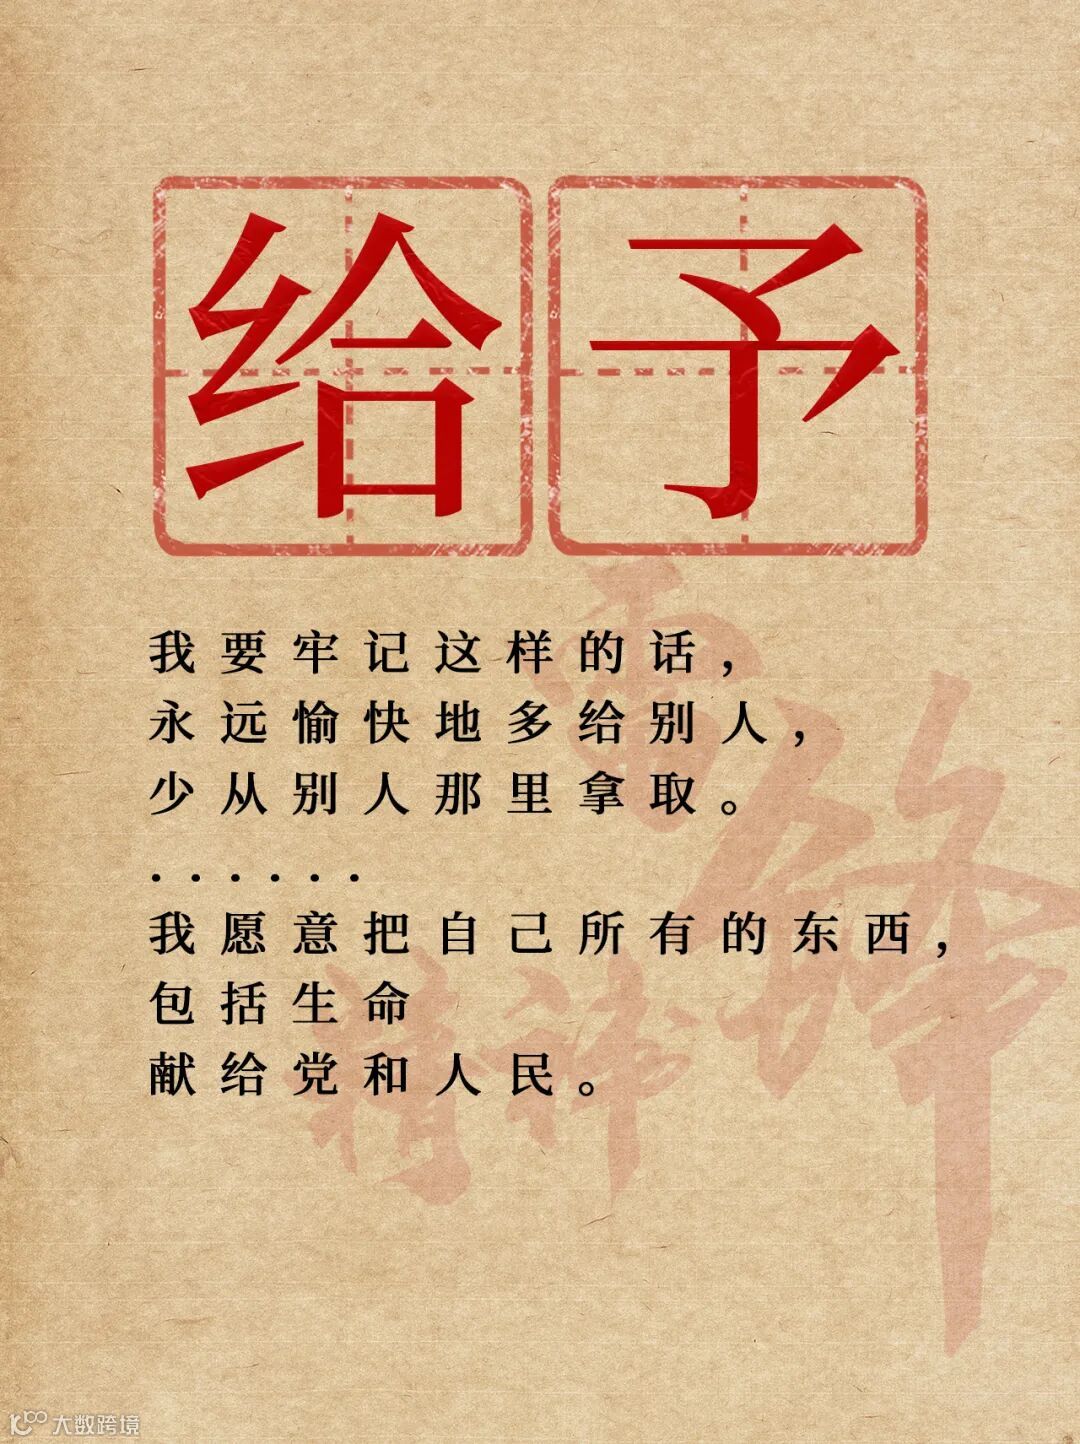 给予
我要牢记这样的话，
永远愉快地多给别人，
少从别人那里拿取。
......
我愿意把自己所有的东西，
包括生命
献给党和人民。
雷锋
精神
大数跨境